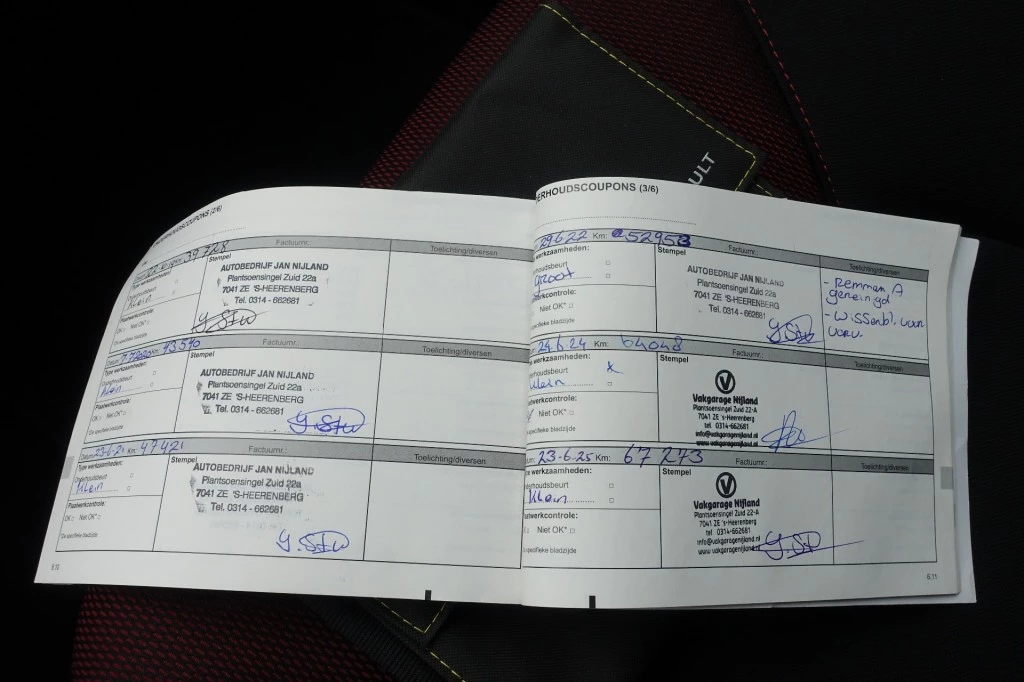 ULT
ERHOUDSCOUPONS (3/6)
Km: 39728
Factuurnr.:
Toelichting/diversen
Type werkzaamheden:
Klein
Plaatwerkcontrole:
OK Niet OK*
Stempel
AUTOBEDRIJF JAN NIJLAND
Plantsoensingel Zuid 22a
7041 ZE 'S-HEERENBERG
Tel. 0314-662681
Km: 43570
Factuurnr.:
Toelichting/diversen
Type werkzaamheden:
Onderhoudsbeurt
Klein
Plaatwerkcontrole:
OK Niet OK*
*Zie specifieke bladzijde
Stempel
AUTOBEDRIJF JAN NIJLAND
Plantsoensingel Zuid 22a
7041 ZE 'S-HEERENBERG
Tel. 0314 - 662681
Datum: 23-6-21 Km: 47421
Factuurnr.:
Toelichting/diversen
Type werkzaamheden:
Onderhoudsbeurt
Klein
Plaatwerkcontrole:
OK Niet OK*
*Zie specifieke bladzijde
Stempel
AUTOBEDRIJF JAN NIJLAND
Plantsoensingel Zuid 22a
7041 ZE 'S-HEERENBERG
Tel. 0314 - 662681
6.10
29-6-22 Km: 52958
Factuurnr.:
Toelichting/diversen
e werkzaamheden:
rhoudsbeurt
Groot
werkcontrole:
Niet OK*
specifieke bladzijde
Stempel
AUTOBEDRIJF JAN NIJLAND
Plantsoensingel Zuid 22a
7041 ZE 'S-HEERENBERG
Tel. 0314-662681
- Remmen A
gereinigd
- Wissenbl. voor
vorv.
24-6-24 Km: 64048
Factuurnr.:
Toelichting/diversen
e werkzaamheden:
erhoudsbeurt x
Klein
atwerkcontrole:
Niet OK*
specifieke bladzijde
Stempel
Vakgarage Nijland
Plantsoensingel Zuid 22-A
7041 ZE 's-Heerenberg
0314-662681
info@vakgaragenijland.nl
www.vakgaragenijland.nl
um: 23-6-25 Km: 67273
Factuurnr.:
Toelichting/diversen
e werkzaamheden:
erhoudsbeurt
Klein
atwerkcontrole:
Niet OK*
specifieke bladzijde
Stempel
Vakgarage Nijland
Plantsoensingel Zuid 22-A
7041 ZE 's-Heerenberg
0314-662681
info@vakgaragenijland.nl
www.vakgaragenijland.nl
6.11